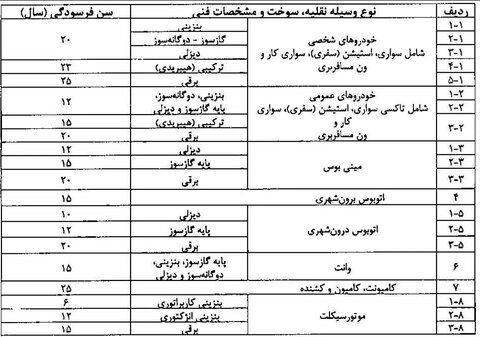 ردیف	نوع وسیله نقلیه، سوخت و مشخصات فنی	سن فرسودگی (سال)
۱-۱	خودروهای شخصی شامل سواری، استیشن (سفری)، سواری کار و ون مسافربری	بنزینی	۲۰
۲-۱	گازسوز - دوگانه‌سوز
۳-۱	دیزلی
۴-۱	ترکیبی (هیبریدی)	۲۳
۵-۱	برقی	۲۵
۱-۲	خودروهای عمومی شامل تاکسی سواری، استیشن (سفری)، سواری کار و ون مسافربری	بنزینی، دوگانه‌سوز، پایه گازسوز و دیزلی	۱۲
۲-۲	ترکیبی (هیبریدی)	۱۵
۳-۲	برقی	۲۰
۱-۳	مینی بوس	دیزلی	۱۲
۲-۳	پایه گازسوز	۱۵
۳-۳	برقی	۲۰
۴	اتوبوس برون‌شهری	۱۵
۱-۵	اتوبوس درون‌شهری	دیزلی	۱۰
۲-۵	پایه گازسوز	۱۲
۳-۵	برقی	۲۰
۶	وانت	پایه گازسوز، بنزینی، دوگانه‌سوز و دیزلی	۱۵
۷	کامیونت، کامیون و کشنده	۲۵
۱-۸	موتورسیکلت	بنزینی کاربراتوری	۶
۲-۸	بنزینی انژکتوری	۱۲
۳-۸	برقی	۱۵